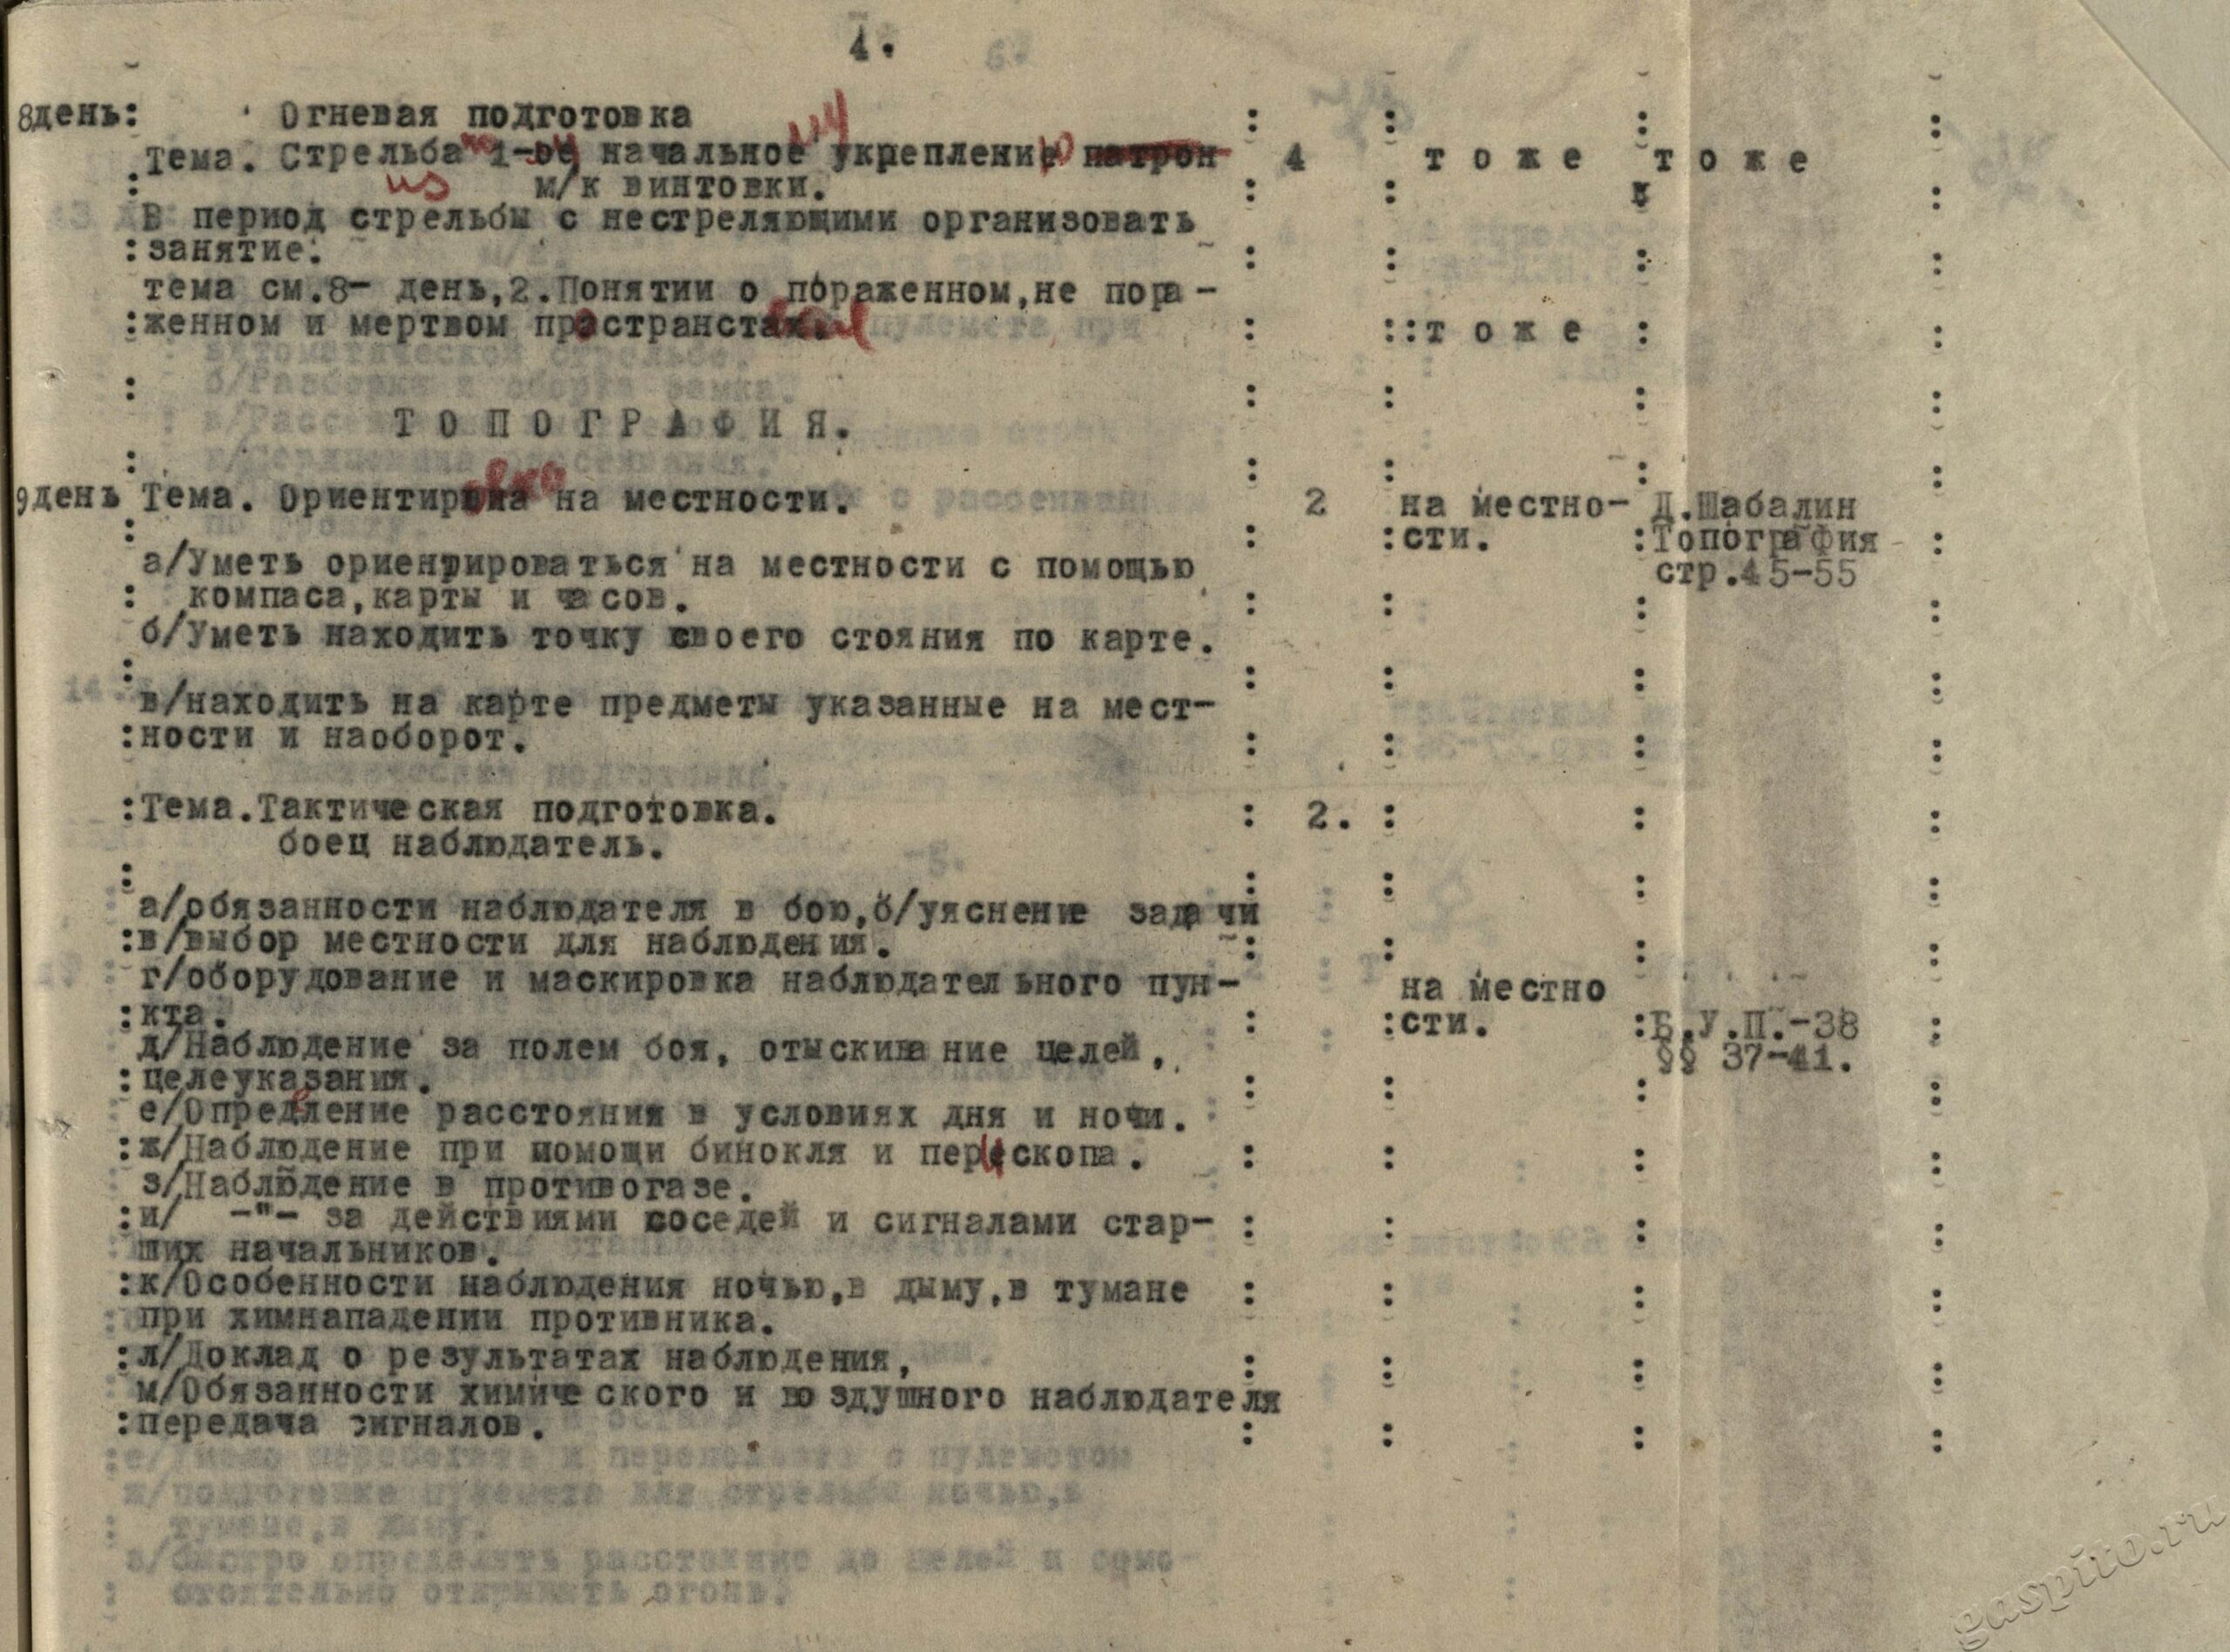 4.
8день: Огневая подготовка : : : :
Тема. Стрельба по 1-му начальному укреплению патрон 4 тоже тоже
: из м/к винтовки. : : :
В период стрельбы с нестреляющими организовать
:занятие. : : : :
тема см.8- день,2.Понятии о пораженном,не пора-
:женном и мертвом пространствах. : ::тоже : :
: : : : :
ТОПОГРАФИЯ.
: : : : :
9день Тема. Ориентировка на местности. 2 на местно- Д.Шабалин
: : :сти. :Топография :
а/Уметь ориентироваться на местности с помощью стр.45-55
: компаса,карты и часов. : : : :
б/Уметь находить точку своего стояния по карте.
: : : : :
в/находить на карте предметы указанные на мест-
:ности и наоборот. : : : :
:Тема.Тактическая подготовка. : 2. : : :
боец наблюдатель.
: : : : :
а/обязанности наблюдателя в бою,б/уяснение задачи
:в/выбор местности для наблюдения. : : : :
г/оборудование и маскировка наблюдательного пун- на местно
:кта. : :сти. :Б.У.П.-38 :
д/Наблюдение за полем боя, отыскивание целей, §§ 37-41.
:целеуказания. : : : :
е/Определение расстояния в условиях дня и ночи.
:ж/Наблюдение при помощи бинокля и перископа. : : : :
з/Наблюдение в противогазе.
:и/ -"- за действиями соседей и сигналами стар- : : : :
ших начальников.
:к/Особенности наблюдения ночью,в дыму,в тумане : : : :
при химнападении противника.
:л/Доклад о результатах наблюдения, : : : :
м/Обязанности химического и воздушного наблюдателя
:передача сигналов. : : : :
gaspito.ru